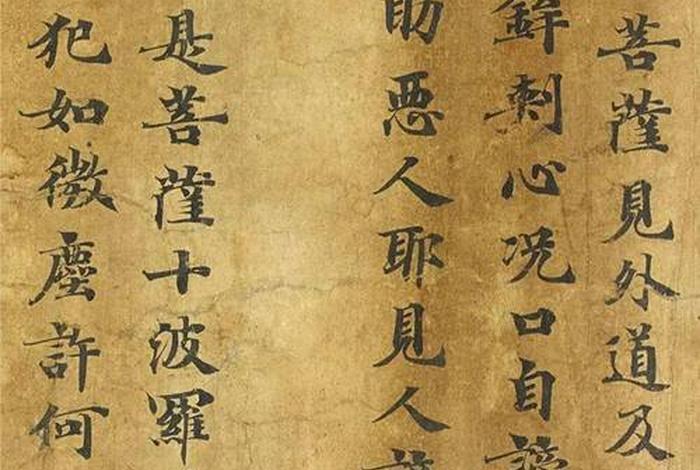 菩薩見外道及
鉾刺心况口自
助悪人耶見人
是菩薩十波羅
犯如微塵許何